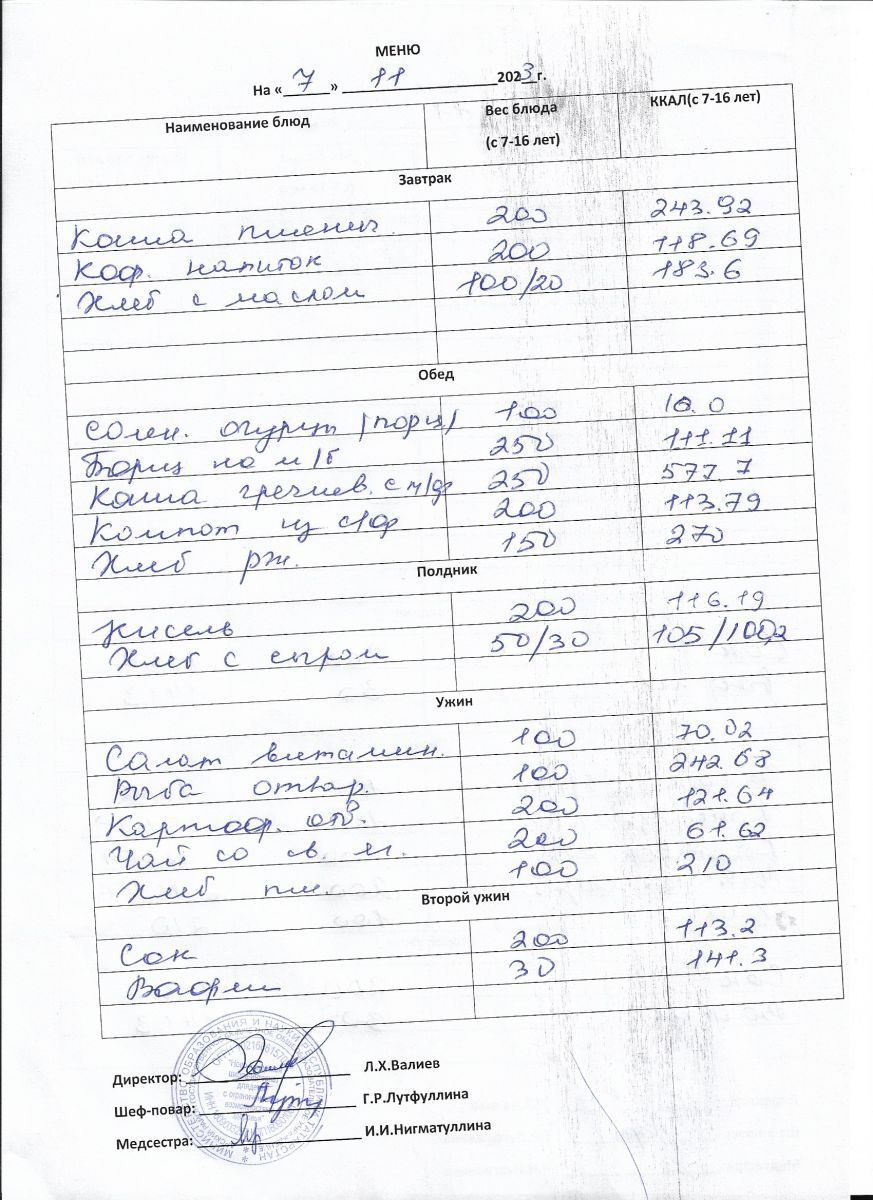 МЕНЮ
На «7» 11 2023 г.
Наименование блюд Вес блюда ККАЛ(с 7-16 лет)
(с 7-16 лет)
Завтрак
Каша пшенич. 200 243.92
Коф. напиток 200 118.69
Хлеб с маслом 100/20 183.6
Обед
Солен. огурцы /порц/ 100 10.0
Борщ на м/б 250 111.11
Каша гречнев. с м/ф 250 577.7
Компот из с/ф 200 113.79
Хлеб рж. 150 270
Полдник
Кисель 200 116.19
Хлеб с сыром 50/30 105/100,2
Ужин
Салат витамин. 100 70.02
Рыба отвар. 100 242.68
Картоф. отв. 200 121.64
Чай со св. м. 200 61.62
Хлеб пш. 100 210
Второй ужин
Сок 200 113.2
Вафли 30 141.3
Директор: Л.Х.Валиев
Шеф-повар: Г.Р.Лутфуллина
Медсестра: И.И.Нигматуллина